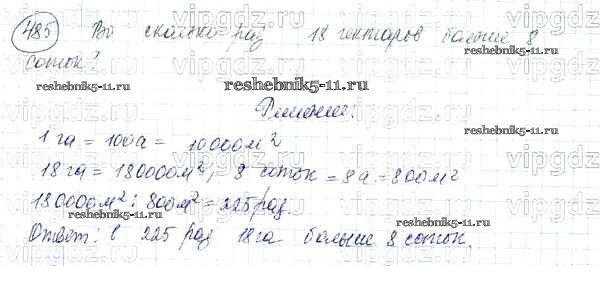 485 Во сколько раз 18 гектаров больше 8
соток?
Решение:
1 га = 100а = 10000м²
18 га = 180000м², = 8 соток = 8а = 800м²
180000м² : 800м² = 225 раз
Ответ: в 225 раз 18га больше 8 соток.